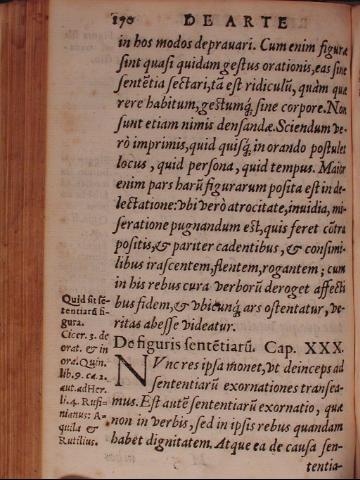 190 DE ARTE
in hos modos deprauari. Cum enim figuræ
sint quasi quidam gestus orationis, eas sine
sentẽtia sectari, tã est ridiculũ, quàm quæ
rere habitum, gestumq́; sine corpore. Non
sunt etiam nimis densandæ. Sciendum ve-
rò imprimis, quid quisq́; in orando postulet
locus, quid persona, quid tempus. Maior
enim pars harũ figurarum posita est in de-
lectatione: vbi verò atrocitate, inuidia, mi-
seratione pugnandum est, quis feret cõtra
positis, & pariter cadentibus, & consimi-
libus irascentem, flentem, rogantem; cum
in his rebus cura verborũ deroget affecti
bus fidem, & vbicunq́; ars ostentatur, ve-
ritas abesse videatur.
De figuris sentẽtiarũ. Cap. XXX.
NVnc res ipsa monet, vt deinceps ad
sententiarũ exornationes transea-
mus. Est autẽ sententiarũ exornatio, quæ
non in verbis, sed in ipsis rebus quandam
habet dignitatem. Atque ea de causa sen-
tentia-
Quid sit sẽ-
tentiarũ fi-
gura.
Cicer. 3. de
orat. & in
ora. Quin.
lib. 9. ca. 2.
aut. ad Her.
li. 4. Rufi-
nianus: A-
quila &
Rutilius.